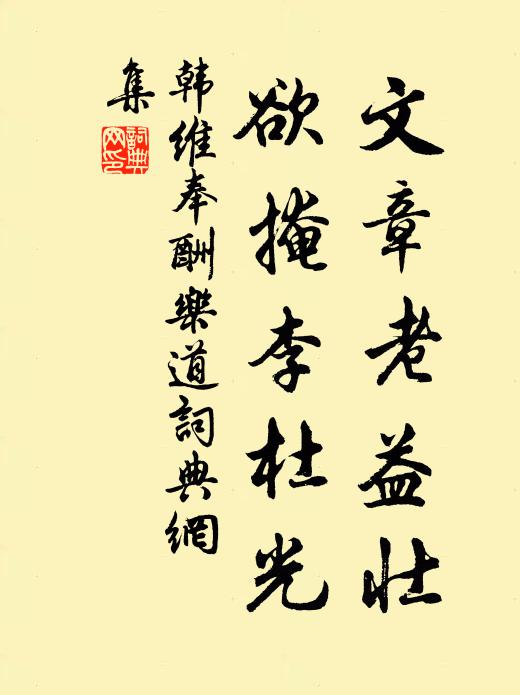 文章老益壮
欲掩李杜光
韩维奉酬樂道詞典網
集
詞典
网印